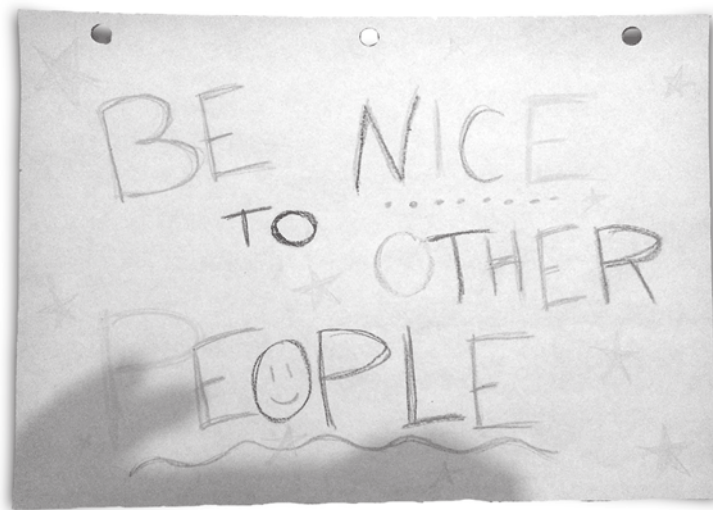 BE NICE
TO OTHER
PEOPLE